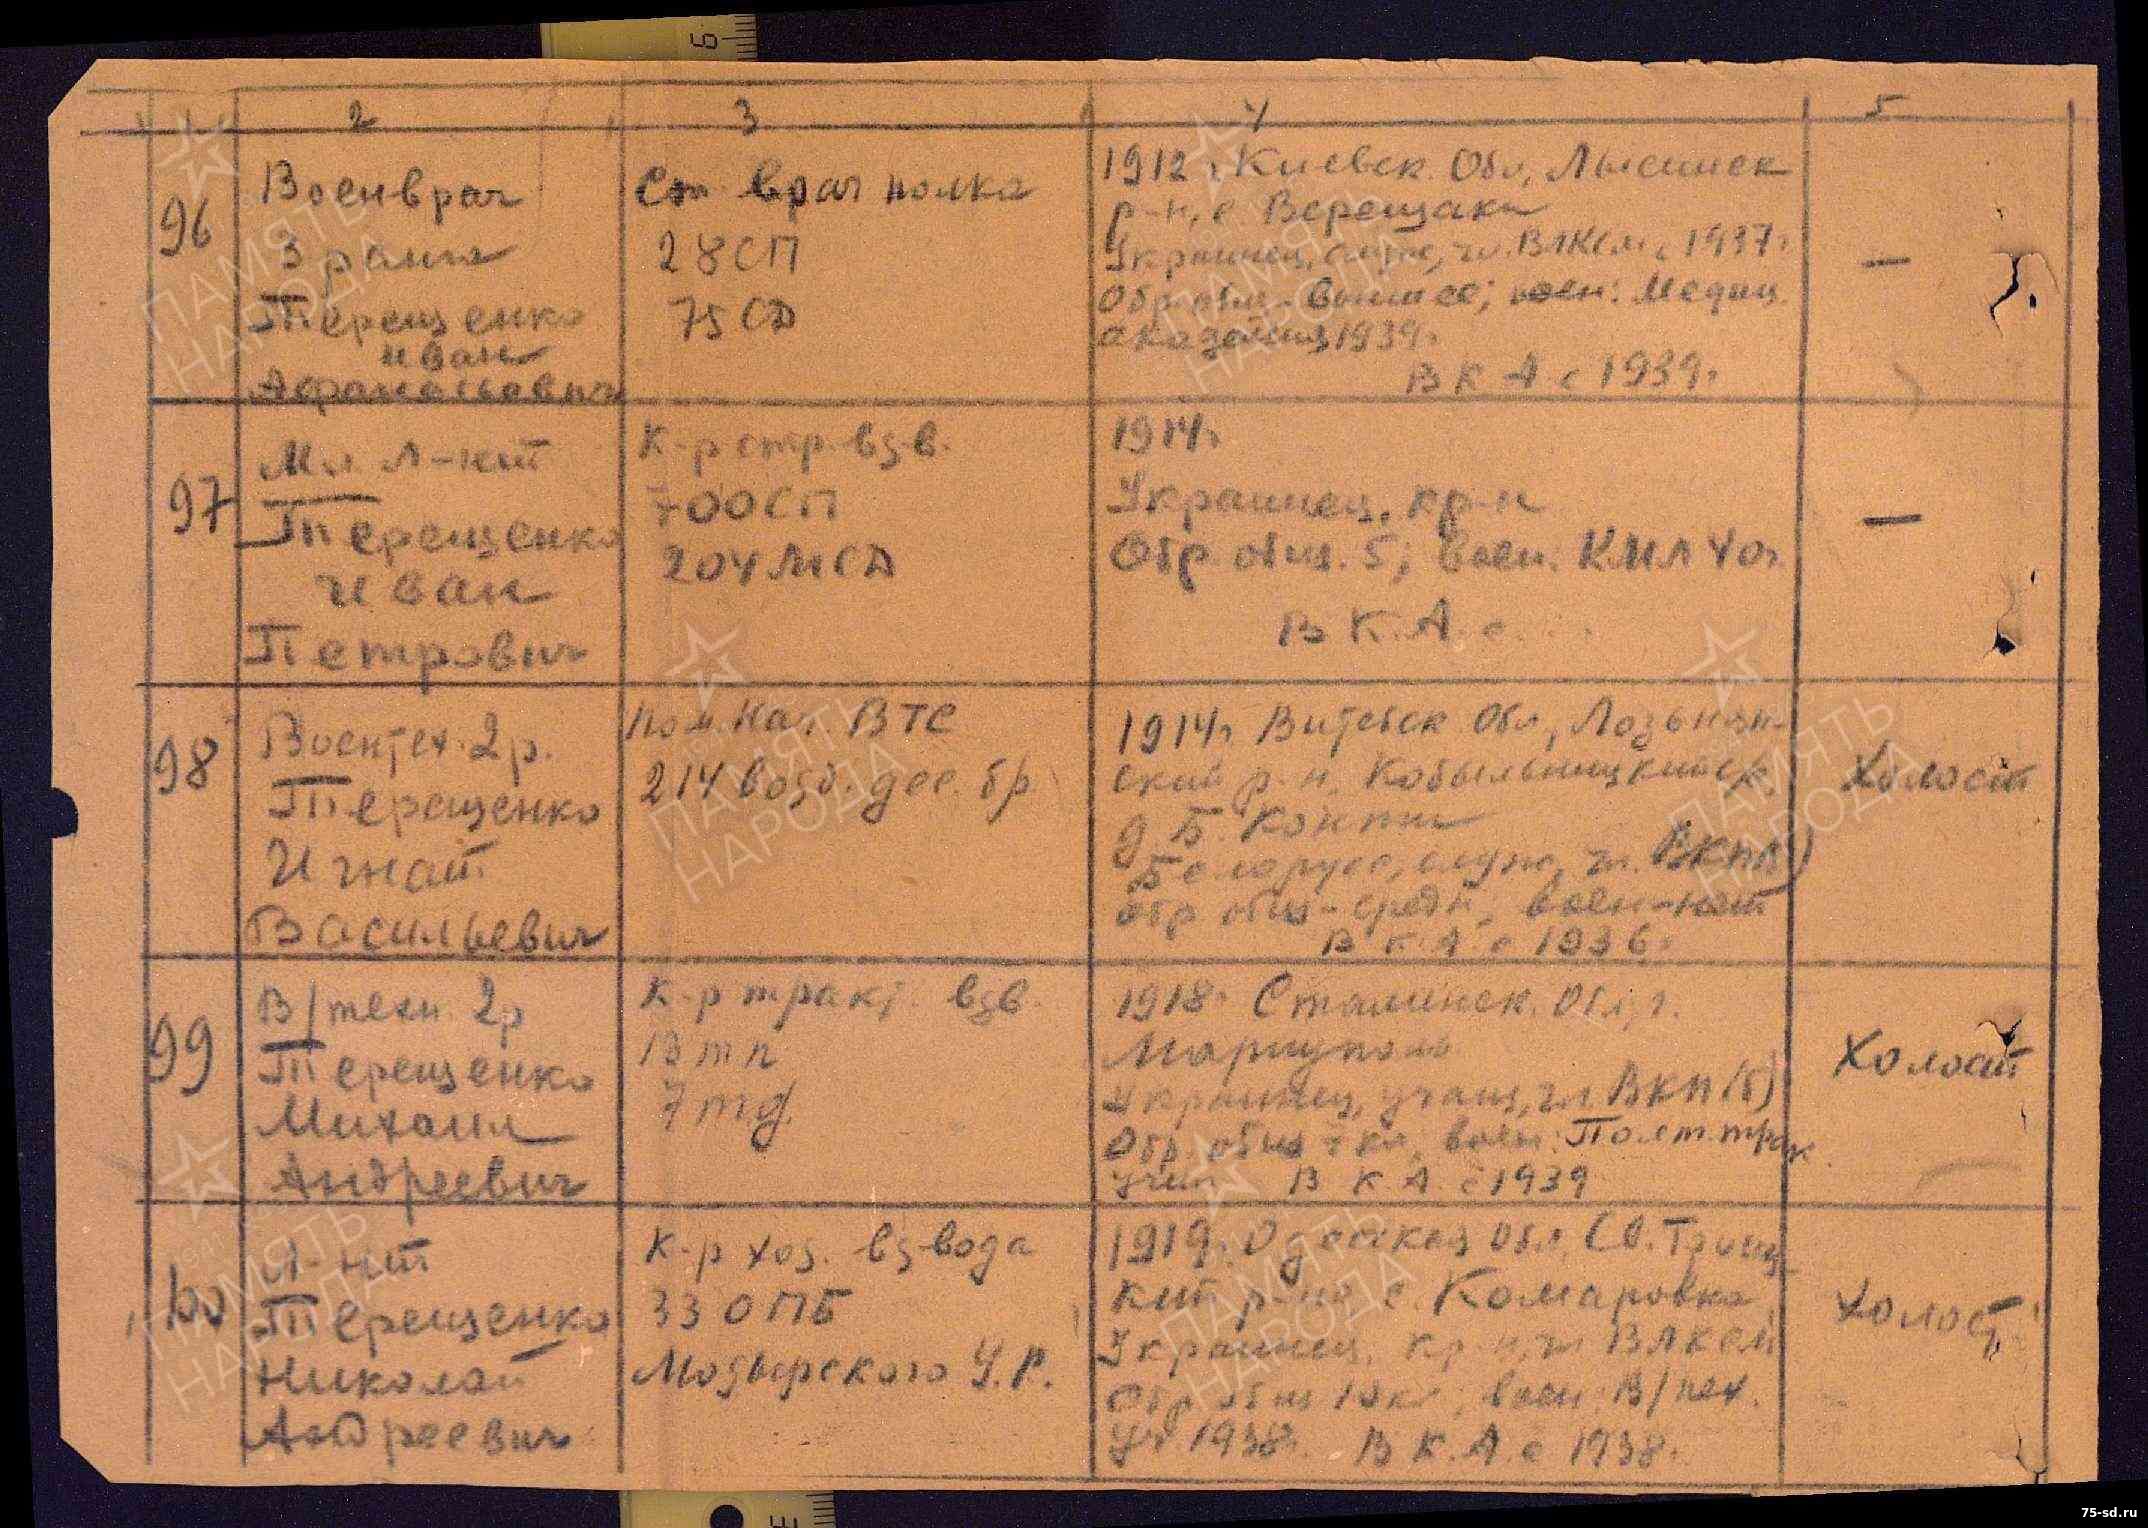 2 3 4 5
96
Военврач
3 ранга
Терещенко
Иван
Афанасьевич
Ст врач полка
28СП
75СД
1912 г Киевск. Обл, Лысинск
р-н, с. Верещаки
Украинец, служ, чл. ВЛКСМ с 1937г
Обр. общ. высшее; воен: Медиц
академия 1939г.
В К А с 1939г.
—
97
Мл. Л-нт
Терещенко
Иван
Петрович
К-р стр. взв.
700СП
204 МСД
1914г
Украинец, кр-н
Обр. общ. 5; воен. КМЛ 40г
В К. А. с
—
98
Воентех. 2р.
Терещенко
Игнат
Васильевич
Пом. Нач. ВТС
214 возд. дес. бр.
1914г Витебск Обл, Лозьнян-
ский р-н, Кобыльницкий с/с
д. Б. Конти
Белорусс, служ, чл. ВКП
Обр общ - средн, воен-нет
В К. А. с 1936г
Холост
99
В/техн 2р
Терещенко
Михаил
Андреевич
К-р тракт. взв.
13 тп
7 тд.
1918г Сталинск. Обл, г.
Мариуполь
Украинец, учащ, чл. ВКП(б)
Обр. общ 7 кл, воен: Полт. трак.
учил В К. А. с 1939
Холост
100
Л-нт
Терещенко
Николай
Андреевич
К-р хоз. взвода
33 ОПБ
Мозырского У.Р.
1919г. Одесская Обл, Св. Троиц-
кий р-но с. Комаровка,
Украинец, кр-н, чл ВЛКСМ
Обр общ 10 кл, воен: В/пех.
Уч 1938г. В К. А. с 1938г.
Холост
ПАМЯТЬ
НАРОДА
75-sd.ru